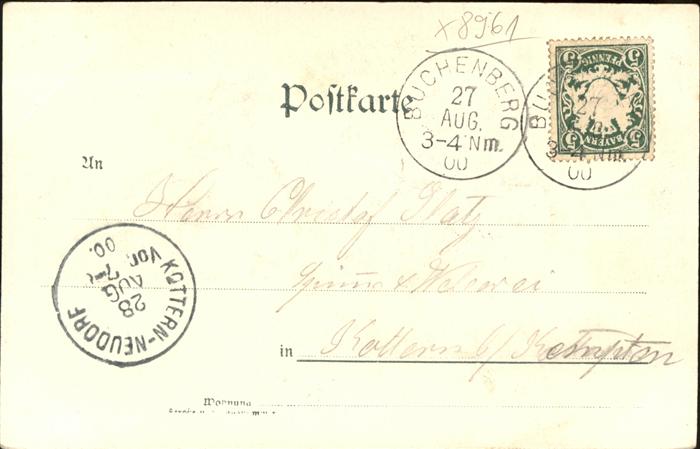 x8961
Postkarte
BUCHENBERG
27
AUG.
3-4 Nm.
00
BU
27
3-4 Nm.
00
5 5
PFENNIG
BAYERN
5 5
An
Herrn Christof Platz
Spinn & Weberei
KOTTERN-NEUDORF
28
AUG
7-8
Vor.
00.
in Kottern b/ Kempten
Wohnung